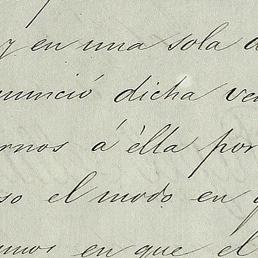 y en una sola
nunció dicha
rnos á élla por
so el modo en
en que el